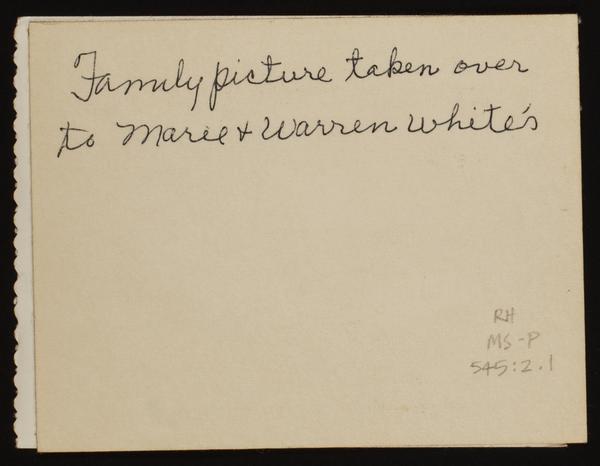 Family picture taken over
to Marie + Warren White's
RH
MS-P
545:2.1